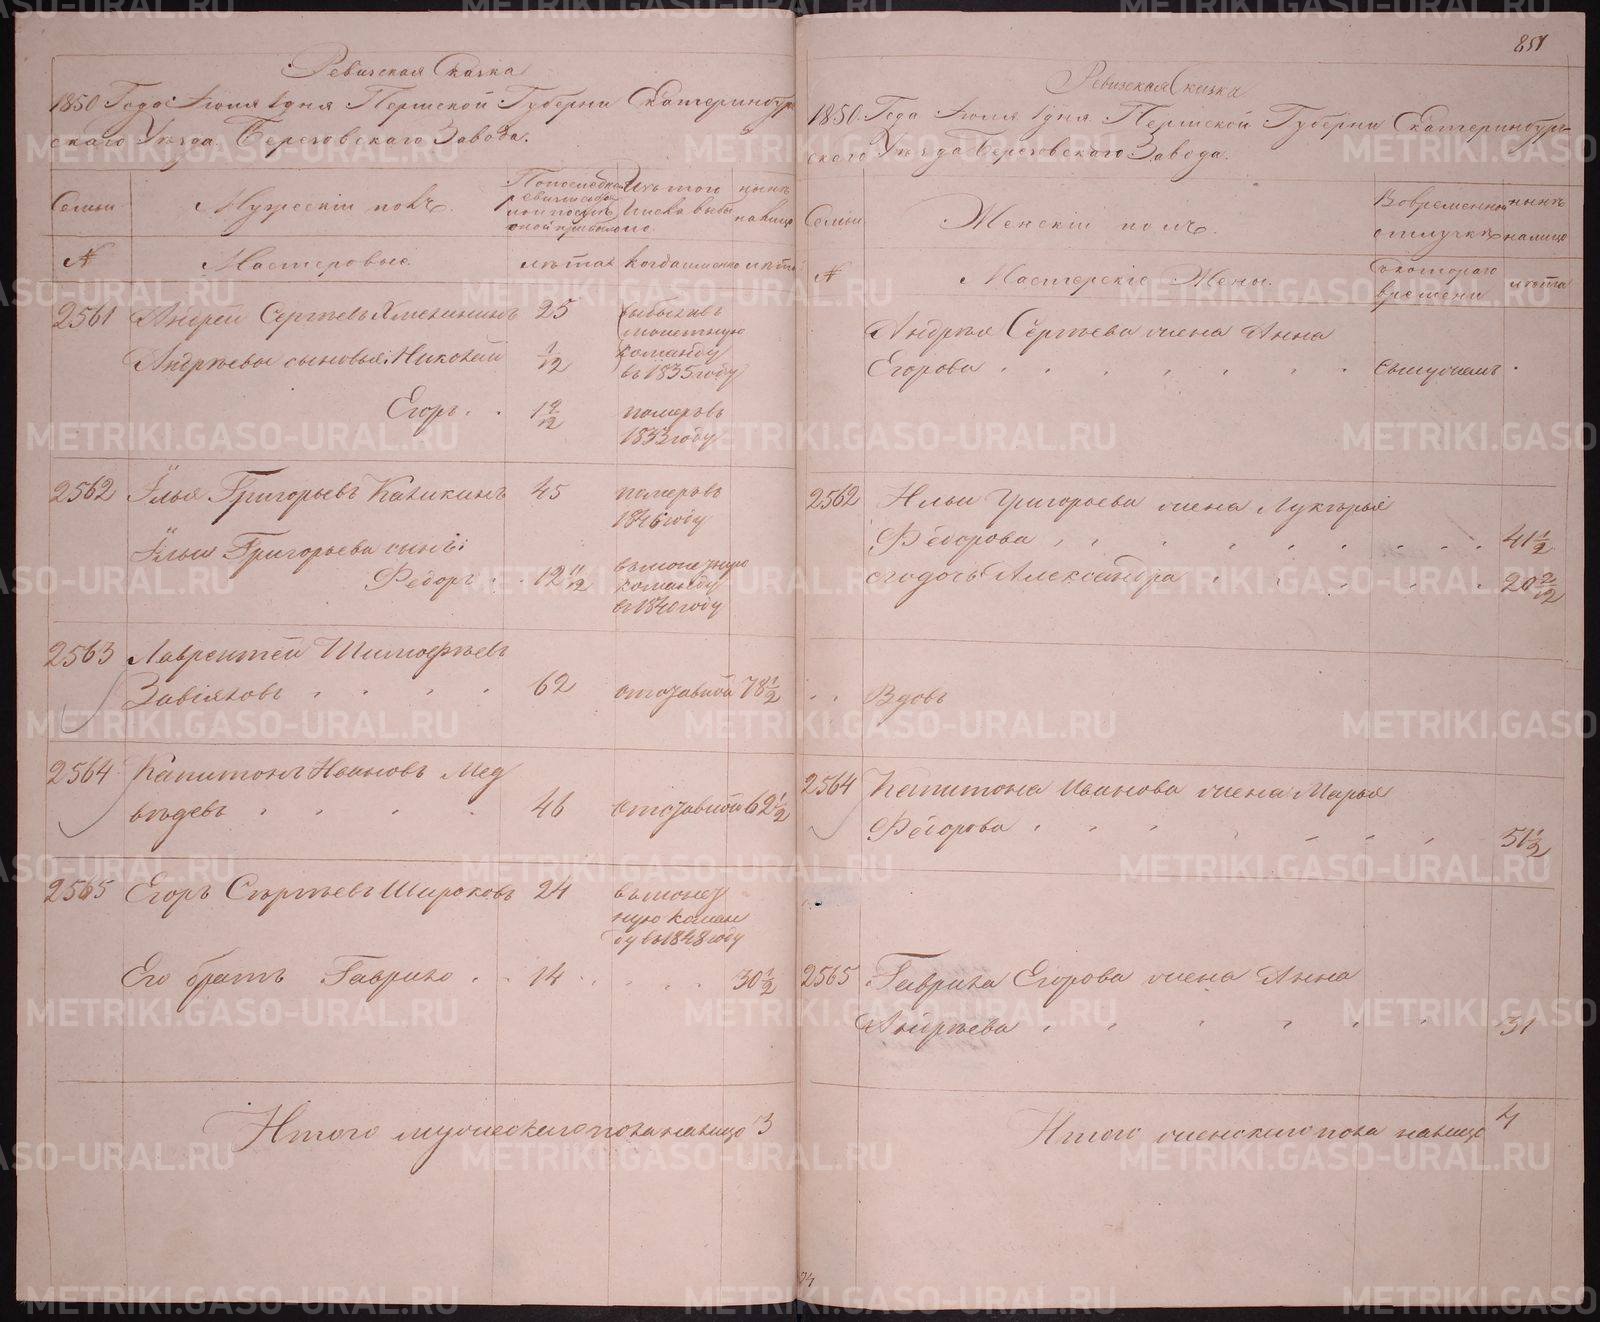 Ревизская Сказка
1850 Года Июля 1 дня Пермской Губерни Екатеринбур
скаго Уезда. Березовскаго Завода.
Семьи
Мужескій полъ.
По последней ревизіи
Изъ того числа выбы
ло.
ныне
на лицо
№
Мастеровые.
лѣта
когда именно
лѣта
2561 Андрей Сергѣевъ 25 выбылъ въ
монетную
команду
въ 1835 году
Андрѣевы сыновья: Николай 1/12
Егоръ 1 9/12 померъ въ
1833 году
2562 Илья Григорьевъ Каликинъ 45 померъ въ
1846 году
Ильи Григорьева сынъ:
Федоръ 12 11/12 въ монетную
команду
въ 1840 году
2563 Лаврентей Тимофѣевъ
Завіяловъ 62 отставной 78 1/2
2564 Капитонъ Ивановъ Мед
вѣдевъ 46 отставной 62 1/2
2565 Егоръ Сергѣевъ Широковъ 24 въ монет
ную коман
ду въ 1848 году
Его братъ Гаврило 14 30 1/2
Итого мужескаго пола на лицо 3
851
Ревизская Сказка
1850 Года Июля 1 дня Пермской Губерни Екатеринбур-
скаго Уезда Березовскаго Завода.
Семьи
Женскій полъ.
Во временной
отлучкѣ
ныне
на лицо
№
Мастерскіе Жены.
съ котораго
времени
лѣта
Андрея Сергѣева жена Анна
Егорова съ мужемъ
2562 Ильи Григорьева жена Лукерья
Федорова 41 1/2
его дочь Александра 20 2/12
Вдовъ
2564 Капитона Иванова жена Марья
Федорова 51 1/2
2565 Гаврила Егорова жена Анна
Андрѣева 31
Итого женскаго пола на лицо 4
METRIKI.GASO-URAL.RU